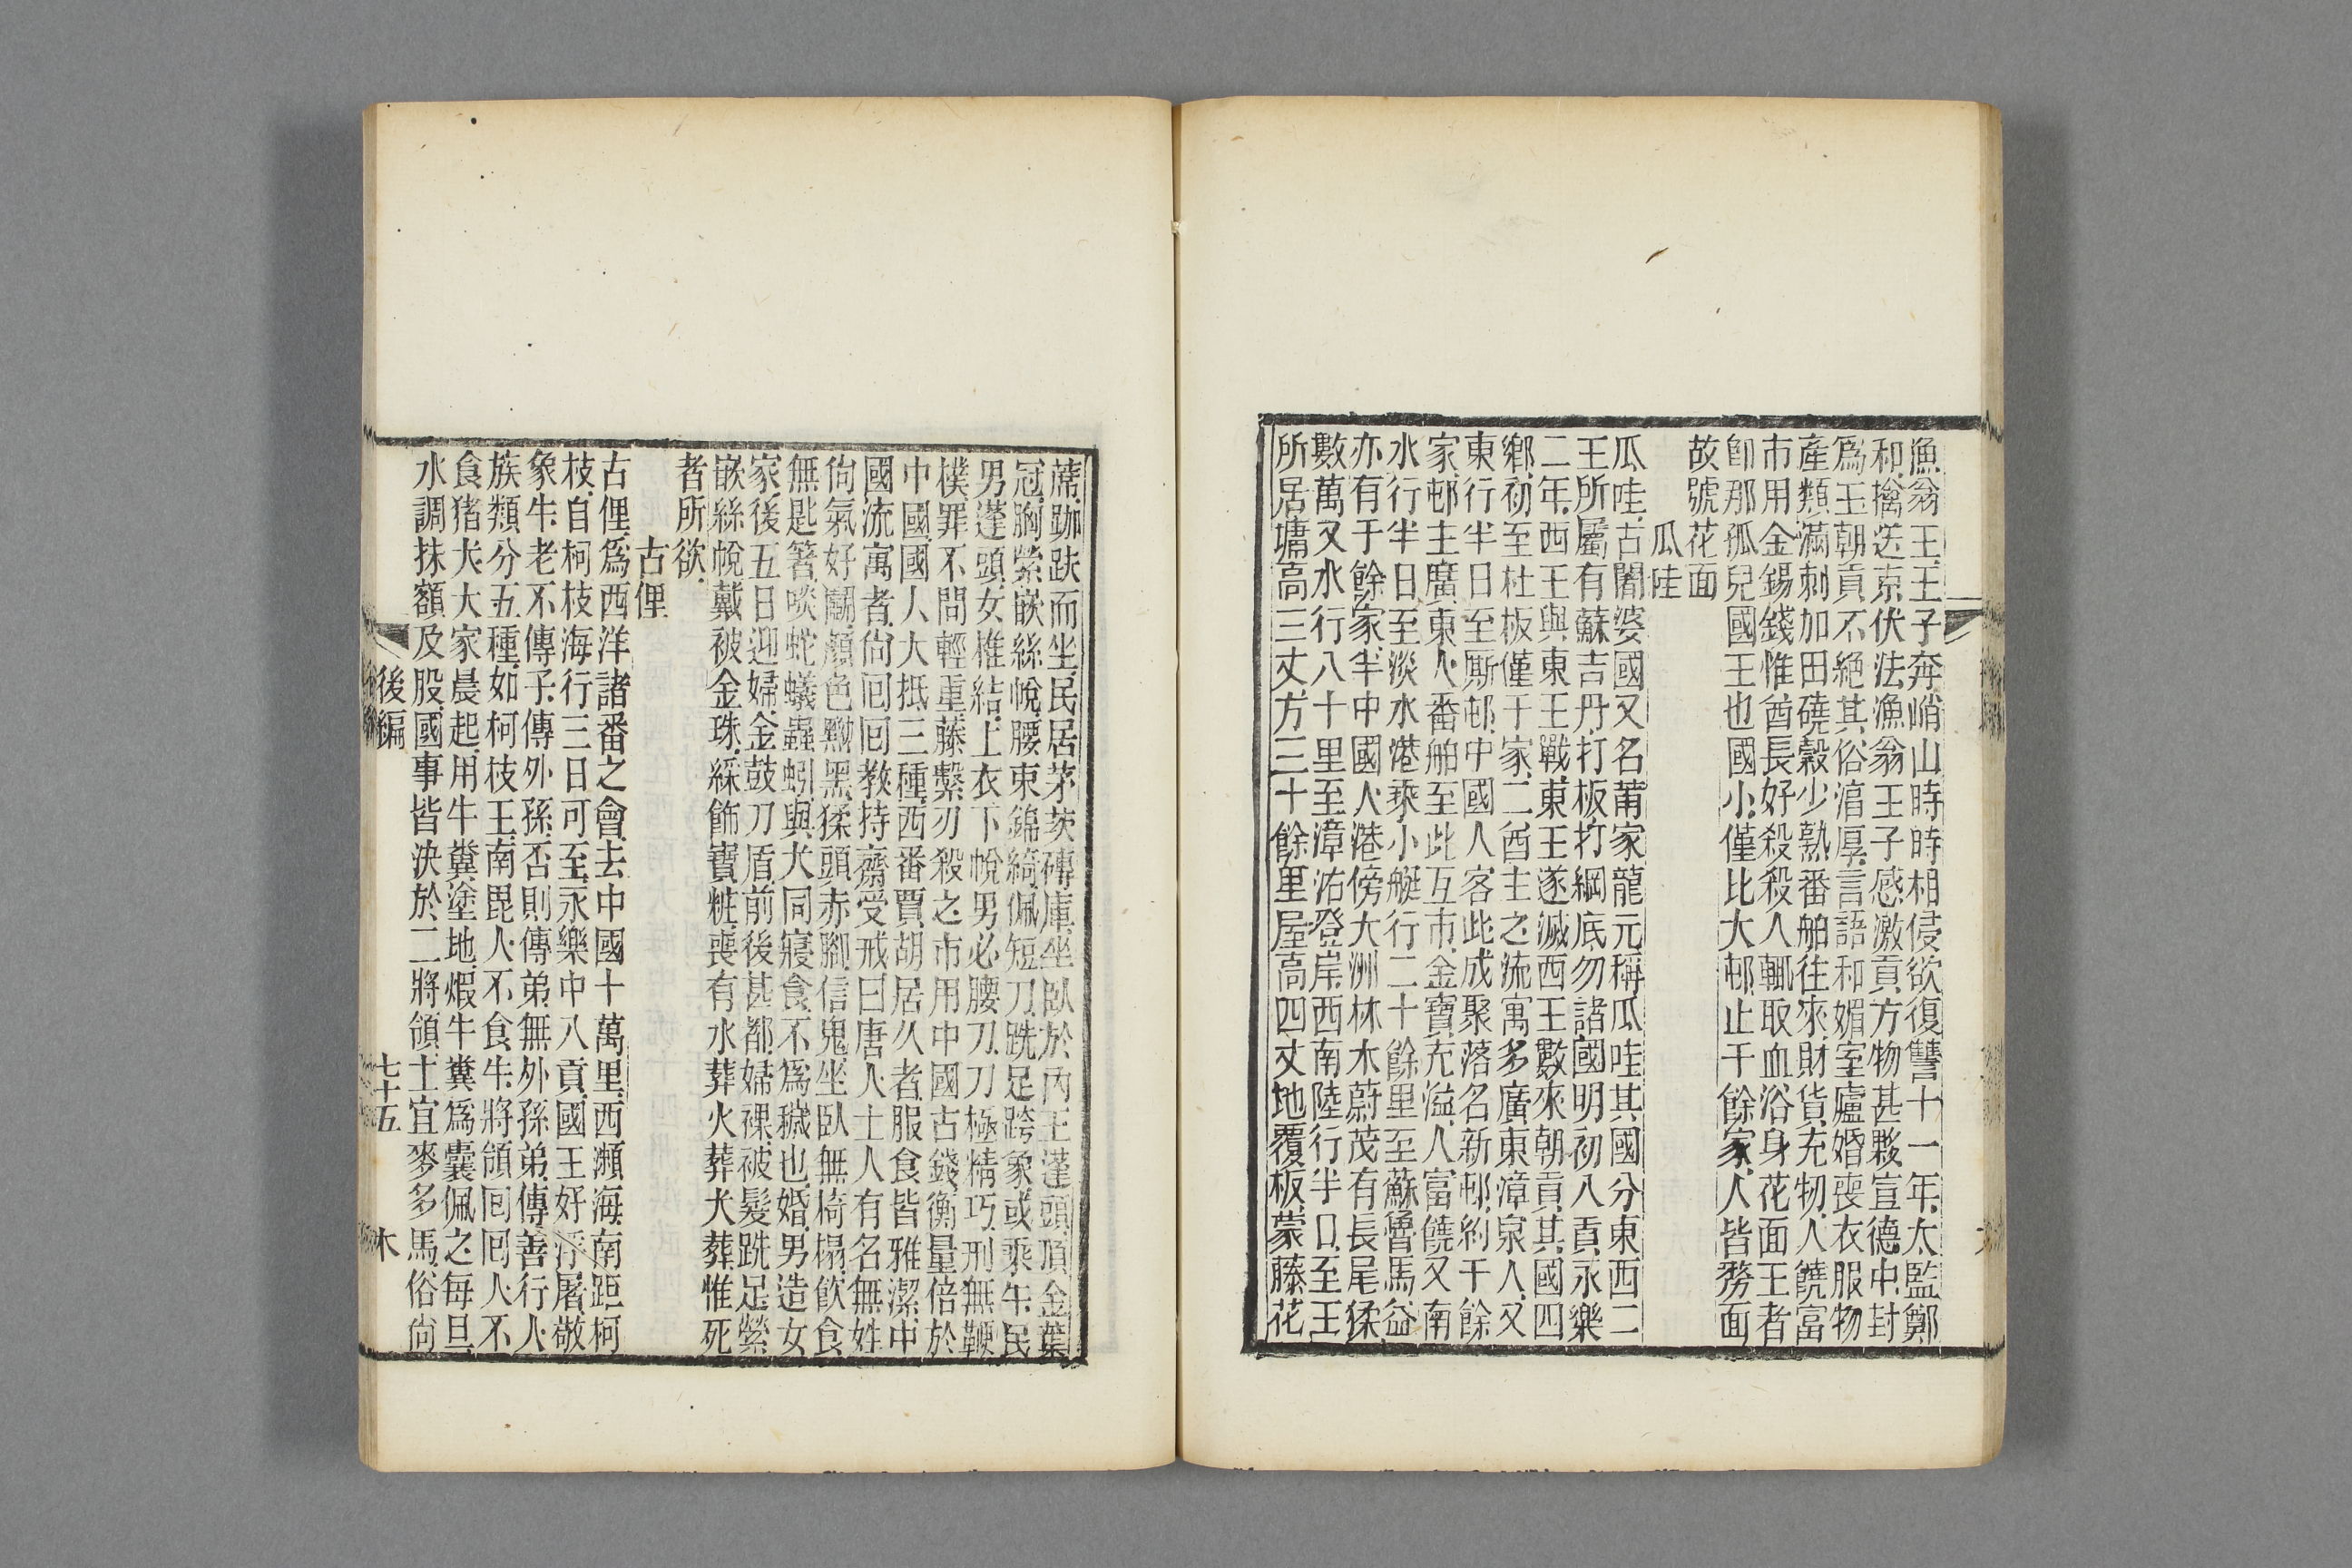 漁翁王王子奔峭山時時相侵欲復讐十一年太監鄭
和擒送京伏法漁翁王子感激貢方物甚夥宣德中封
爲王朝貢不絕其俗淳厚言語和媚室廬婚喪衣服物
產類滿刺加田磽穀少熟番舶往來財貨充牣人饒富
市用金錫錢惟酋長好殺殺人輒取血浴身花面王者
卽那孤兒國王也國小僅比大邨止千餘家人皆剺面
故號花面
瓜哇
瓜哇古闍婆國又名莆家龍元稱瓜哇其國分東西二
王所屬有蘇吉丹打板打綱底勿諸國明初入貢永樂
二年西王與東王戰東王遂滅西王數來朝貢其國四
鄉初至杜板僅千家二酋主之流寓多廣東漳泉人又
東行半日至厮邨中國人客此成聚落名新邨約千餘
家邨主廣東人番舶至此互市金寶充溢人富饒又南
水行半日至淡水港乘小艇行二十餘里至蘇魯馬益
亦有于餘家半中國人港傍大洲林木蔚茂有長尾猱
數萬又水行八十里至漳沽登岸西南陸行半日至王
所居墉高三丈方三十餘里屋高四丈地覆板蒙藤花
蓆跏趺而坐民居茅茨磚庫坐臥於內王蓬頭頂金葉
冠胸縈嵌絲帨腰束錦綺佩短刀跣足跨象或乘牛民
男蓬頭女椎結上衣下帨男必腰刀刀極精巧刑無鞭
樸罪不問輕重藤繫刃殺之市用中國古錢衡量倍於
中國國人大抵三種西番賈胡居久者服食皆雅潔中
國流寓者尙囘囘教持齋受戒曰唐人土人有名無姓
尙氣好鬭顏色黝黑猱頭赤腳信鬼坐臥無椅榻飲食
無匙箸啖蛇蟻蟲蚓與犬同寢食不爲穢也婚男造女
家後五日迎婦金鼓刀盾前後甚都婦裸被髮跣足縈
嵌絲帨戴被金珠綵飾寶粧喪有水葬火葬犬葬惟死
者所欲
古俚
古俚爲西洋諸番之會去中國十萬里西瀕海南距柯
枝自柯枝海行三日可至永樂中入貢國王好浮屠敬
象牛老不傳子傳外孫否則傳弟無外孫弟傳善行人
族類分五種如柯枝王南毘人不食牛將領囘囘人不
食猪犬大家晨起用牛糞塗地煆牛糞爲囊佩之每旦
水調抹額及股國事皆決於二將領土宜麥多馬俗尙
後編
七十五
木